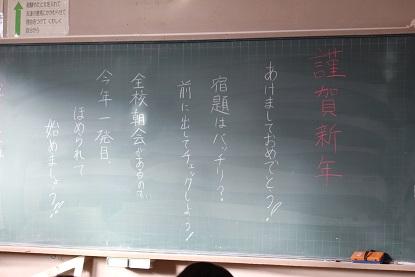 謹賀新年
あけましておめでとう!!
宿題はバッチリ?
前に出してチェックしよう!
全校朝会があるので、
今年一発目、
ほめられて
始めましょう!!